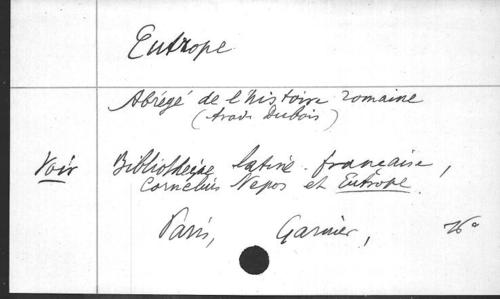 Eutrope
Abrégé de l'histoire romaine
(trad. Dubois)
Voir Bibliothèque latine-française,
Cornelius Nepos et Eutrope.
Paris, Garnier,